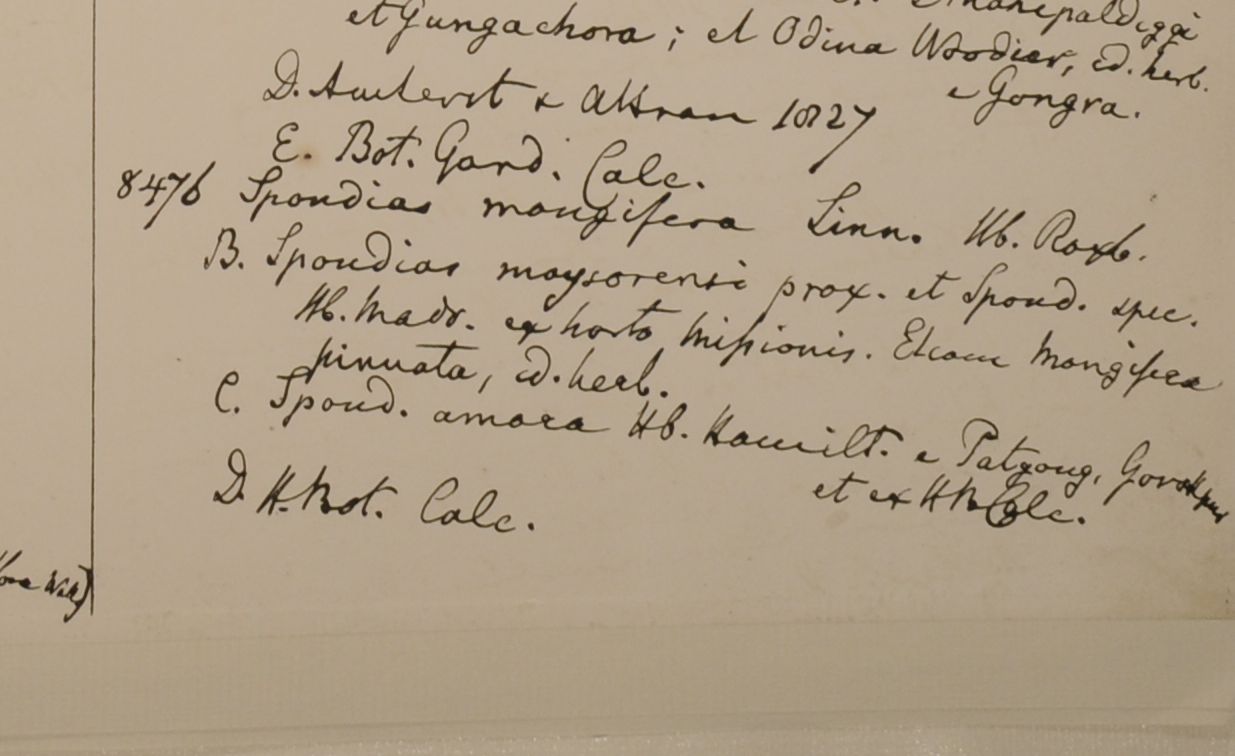 et Gungachora; et Odina Wodier, ed. herb.
e Gongra.
D. Amherst & Attran 1827
E. Bot. Gard. Calc.
8476 Spondias mangifera Linn. Hb. Roxb.
B. Spondias maysorensi prox. et Spond. spec.
Hb. Madr. ex horto Missionis. Etiam Mangifera
pinnata, ed. herb.
C. Spond. amara Hb. Hamilt. e Patgong, Gorakpur
et ex H.B. Calc.
D. H. Bot. Calc.